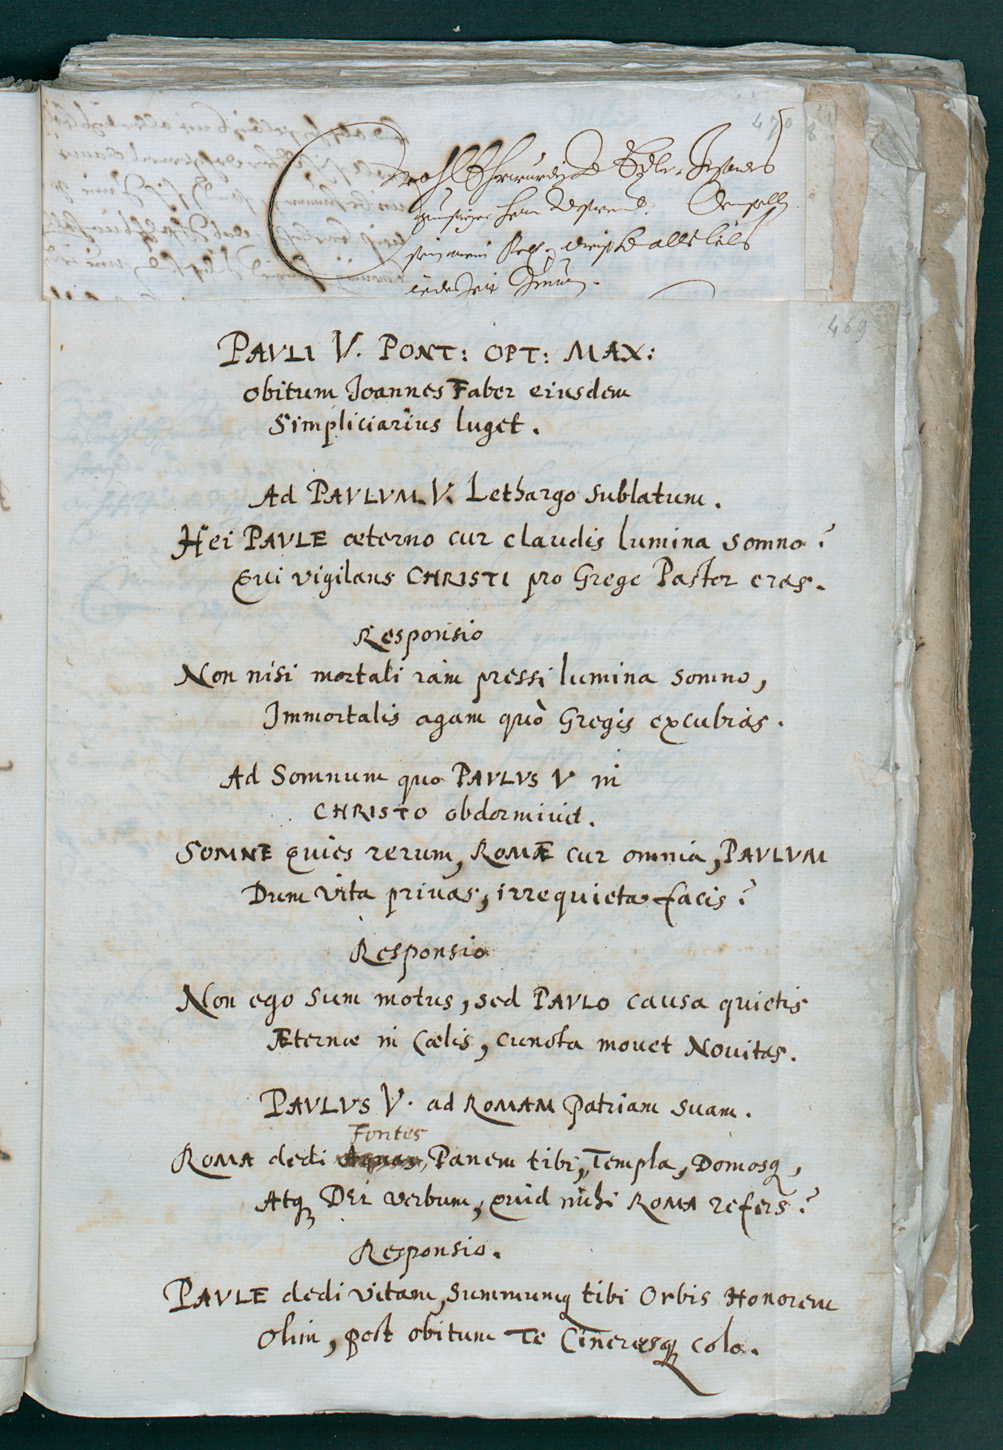 470
469
PAVLI V. PONT: OPT: MAX:
obitum Joannes Faber eiusdem
Simpliciarius luget.
Ad PAVLVM V. Lethargo sublatum.
Hei PAVLE æterno cur claudis lumina somno?
Qui vigilans CHRISTI pro Grege Pastor eras.
Responsio
Non nisi mortali iam pressi lumina somno,
Immortalis agam quò Gregis excubias.
Ad Somnum quo PAVLVS V in
CHRISTO obdormiuit.
SOMNE quies rerum, ROMÆ cur omnia, PAVLVM
Dum vita priuas, irrequieta facis?
Responsio
Non ego sum motus, sed PAVLO causa quietis
Æternæ in Cœlis, cuncta mouet Nouitas.
PAVLVS V. ad ROMAM patriam suam.
Fontes
ROMA dedi Aquas, Panem tibi, Templa, Domosq,
Atq DEI verbum, quid mihi ROMA refers?
Responsio.
PAVLE dedi vitam, summumq tibi Orbis Honorem
Olim, post obitum Te Cineresq colo.